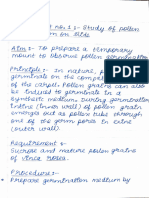 t No: 1 :- Study of pollen
on on slide
Aim :- To prepare a temporary
mount to observe pollen germinati
Principle :- In nature, pollen
germinate on the compe
of the carpel. Pollen grains can also
be induced to germinate in a
synthetic medium. During germination
intine (inner wall) of pollen grain
emerges out as pollen tube through
one of the germ pores in exine
(outer wall).
Requirement :-
Sucrose and mature pollen grains
of vinca rosea.
Procedure :-
• Prepare germination medium by